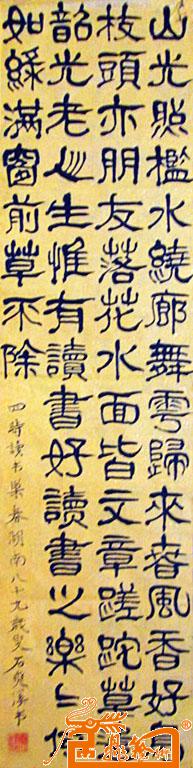 山光照檻水繞廊舞雩歸來春風香好鳥
枝頭亦朋友落花水面皆文章蹉跎莫
韶光老人生惟有讀書好讀書之樂〻何
如綠滿窗前草不除
四時读书樂春湖南八十九歲叟石爽书